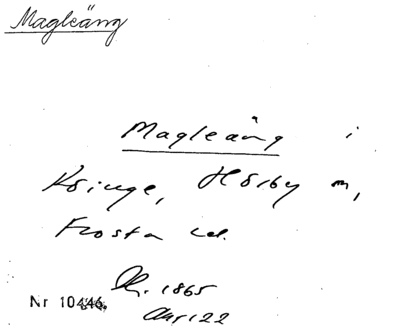 Magleäng
Magleäng i
Kringe, Hörby
Frosta
1865
Nr 10446.